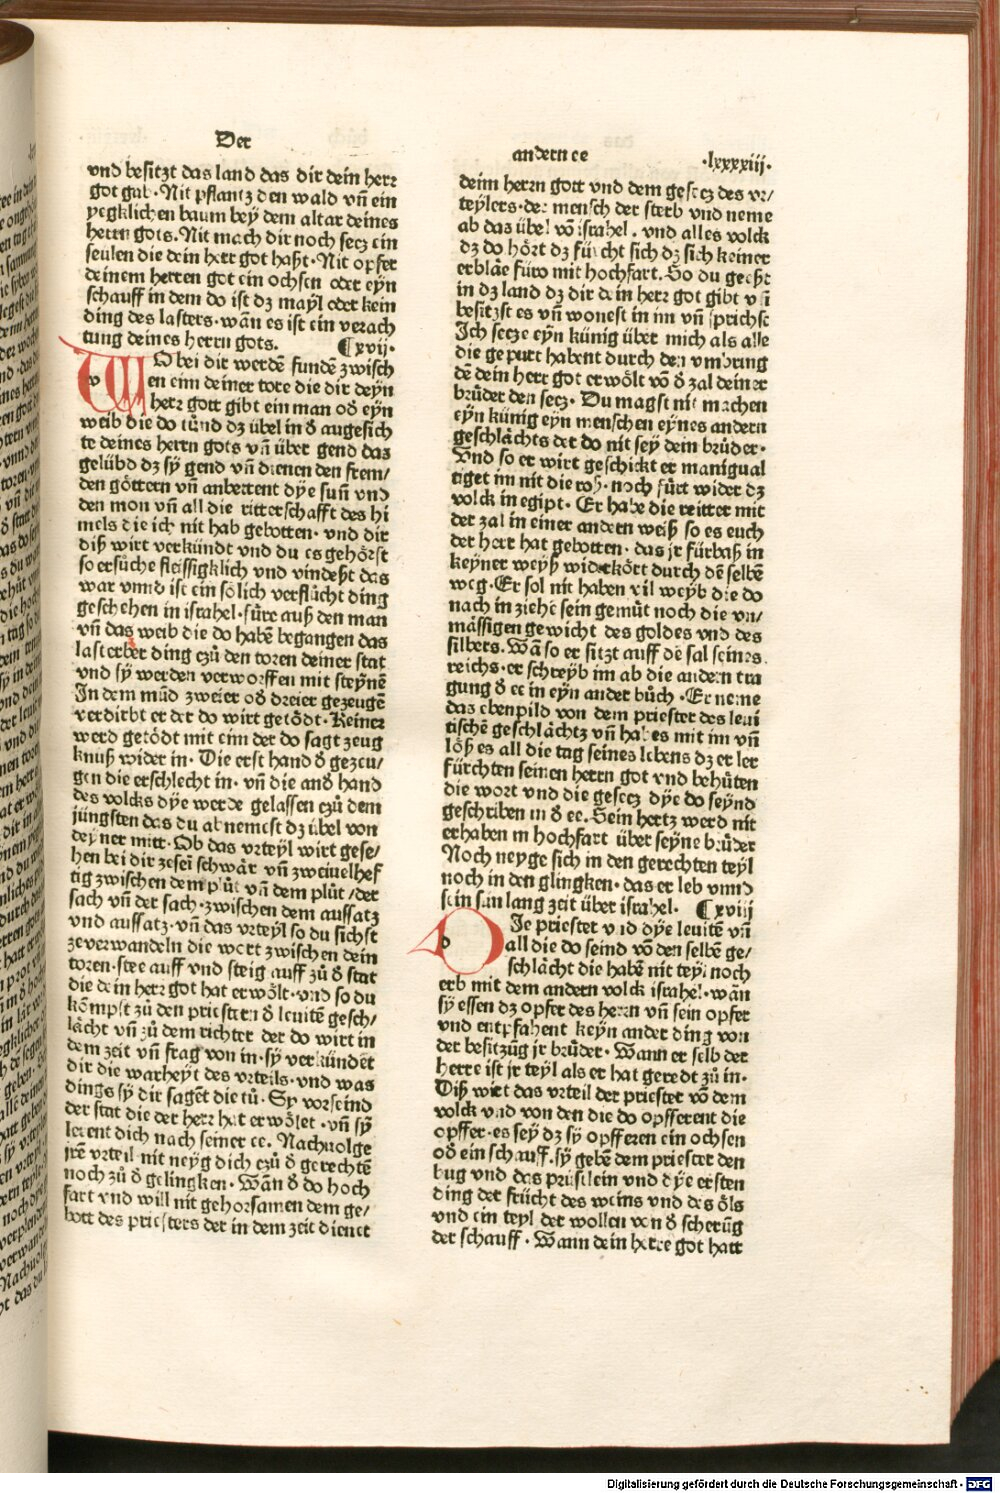 Der
andern ee
·lxxxxiij·
vnd besitzt das land das dir dein herr
got gab · Nit pflantz den wald vñ ein
yegklichen baum bey dem altar deines
herrn gots. Nit mach dir noch secz ein
seulen die dein herr got haßt · Nit opfer
deinem herren got ein ochsen oder eyn
schauff in dem do ist dz mayl oder kein
ding des lasters · wañ es ist ein verach
tung deines herrn gots. ¶xvij·
WO bei dir werdē fundē zwisch
en eim deiner tore die dir deyn
herr gott gibt ein man od̄ eyn
weib die do tünd dz übel in d̄ augesich
te deines herrn gots vñ über gend das
gelübd dz sÿ gend vñ dienen den frem/
den göttern vñ anbettent dÿe suñ vnd
den mon vñ all die ritterschafft des hi
mels die ich nit hab gebotten · vnd dir
diß wirt verkündt vnd du es gehörst
so ersůche fleissigklich vnd vindeßt das
war vnnd ist ein sölich verflůcht ding
geschehen in israhel · füre auß den man
vñ das weib die do habē begangen das
lasterber ding czů den toren deiner stat
vnd sÿ werden verworffen mit steynē
In dem mūd zweier od̄ dreier gezeugē
verdirbt er der do wirt getödt · Keiner
werd getödt mit eim der do sagt zeug
knuß wider in · Die erst hand d̄ gezeu/
gen die erschlecht in · vñ die and̄ hand
des volcks dÿe werde gelassen czů dem
jüngsten das du abnemest dz übel von
deyner mitt · Ob das vrteyl wirt gese/
hen bei dir zeseī schwär vñ zweiuelhef
tig zwischen dem plůt vñ dem plůt / der
sach vñ der sach · zwischen dem aussatz
vnd aussatz · vñ das vrteyl so du sichst
ze verwandeln die wort zwischen dein
toren · stee auff vnd steig auff zů d̄ stat
die dein herr got hat erwölt · vnd so du
kōmpst zů den priestern d̄ leuitē gesch/
lächt vñ zů dem richter der do wirt in
dem zeit vñ frag von in · sÿ verkündēt
dir die warheyt des vrteils · vnd was
dings sÿ dir sagēt die tů · Sy vorseind
der stat die der herr hat erwölet · vñ sÿ
lerent dich nach seiner ee · Nachuolge
jrē vrteil nit neyg dich czů d̄ gerechtē
noch zů d̄ gelingken · Wañ d̄ do hoch
fart vnd will nit gehorsamen dem ge/
bott des priesters der in dem zeit dienet
deim herrn gott vnd dem gesecz des vr/
teylers · der mensch der sterb vnd neme
ab das übel vō israhel · vnd alles volck
dz do hört dz fürcht sich dz sich keiner
erbläe fürō mit hochfart. So du geest
in dz land dz dir dein herr got gibt vñ
besitzst es vñ wonest in im vñ sprichst
Ich secze eyn künig über mich als alle
die gepurt habent durch den vmbring
dē dein herr got erwölt vō d̄ zal deiner
brůder den secz · Du magst nit machen
eyn künig eyn menschen eynes andern
geschlächts der do nit sey dein brůder ·
Vnd so er wirt geschickt er manigual
tiget im nit die roß · noch fürt wider dz
volck in egipt · Er habe die reitter mit
der zal in einer andern weiß so es euch
der herr hat gebotten · das jr fürbaß in
keyner weyß widerkört durch dē selbē
weg · Er sol nit haben vil weyb die do
nach in ziehē sein gemůt noch die vn/
mässigen gewicht des goldes vnd des
silbers. Wañ so er sitzt auff dē sal seines
reichs · er schreyb im ab die andern tra
gung d̄ ee in eyn ander bůch · Er neme
das ebenpild von dem priester des leui
tischē geschlächtz vñ hab es mit im vñ
löß es all die tag seines lebens dz er ler
fürchten seinen herrn got vnd behůten
die wort vnd die gesecz dÿe do seynd
geschriben in d̄ ee. Sein hertz werd nit
erhaben in hochfart über seyne brůder
Noch neyge sich in den gerechten teyl
noch in den glingken · das er leb vnnd
sein sun lang zeit über israhel. ¶xviij
DIe priester vnd dÿe leuitē vñ
all die do seind vō den selbē ge/
schlächt die habē nit teyl noch
erb mit dem andern volck israhel · wañ
sÿ essen dz opfer des herrn vñ sein opfer
vnd entpfahent keyn ander ding von
der besitzūg jr brůder · Wann er selb der
herre ist jr teyl als er hat geredt zů in ·
Diß wirt das vrteil der priester vō dem
volck vnd von den die do opfferent die
opffer · es sey dz sÿ opfferen ein ochsen
od̄ ein schauff · sÿ gebē dem priester den
bug vnd das prüstlein vnd dÿe ersten
ding der frücht des weins vnd des öls
vnd ein teyl der wollen von d̄ scherūg
der schauff · Wann dein herre got hatt
Digitalisierung gefördert durch die Deutsche Forschungsgemeinschaft - DFG